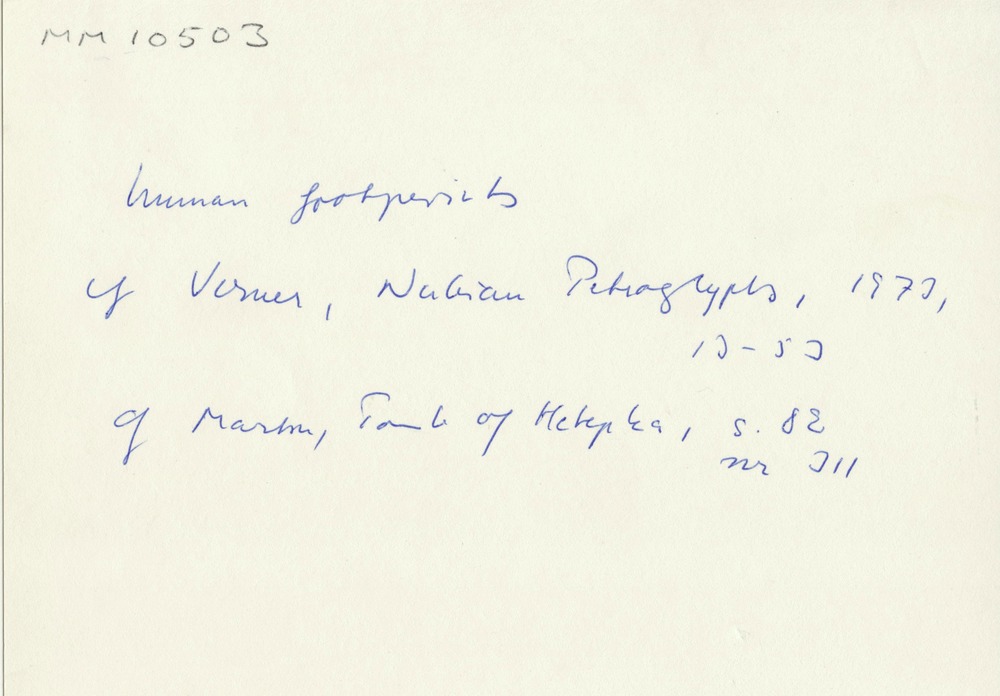 MM 10503
human footprints
cf Verner, Nubian Petroglyphs, 1973,
13-53
cf Martin, Tomb of Hetepka, s. 82
nr 311